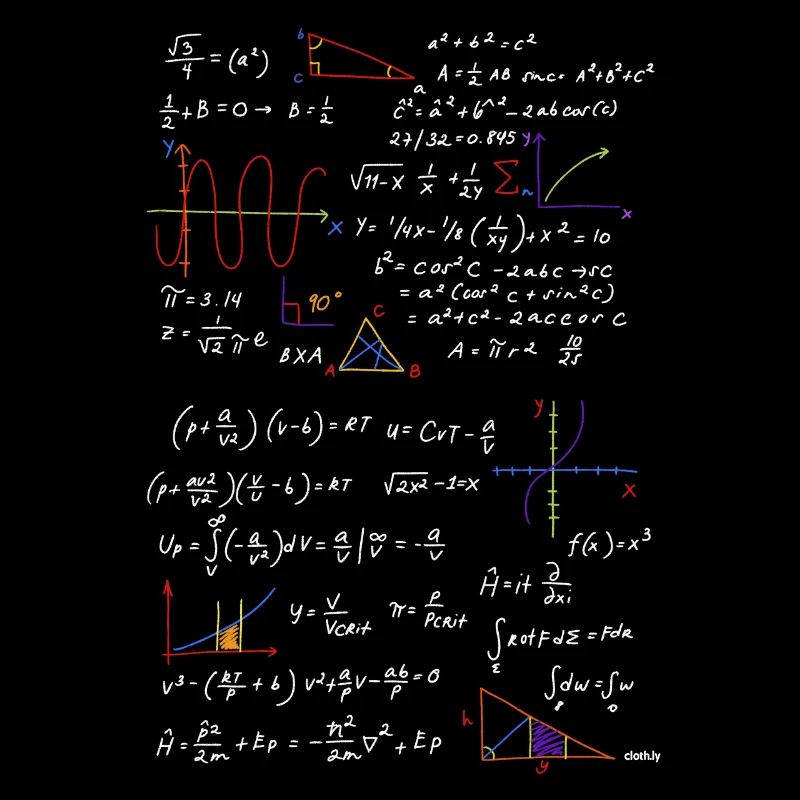 √3/4 = (a²)
b
c
a
a² + b² = c²
A = 1/2 AB sinc = A² + B² + C²
1/2 + B = 0 → B = 1/2
ĉ² = â² + b^² - 2ab cos(c)
27/32 = 0.845
y
x
√11-x 1/x + 1/2y Σ n
y
x
y = 1/4x - 1/8 (1/xy) + x² = 10
b² = cos² c - 2abc → sc
= a² (cos² c + sin² c)
= a² + c² - 2accosc
π = 3.14
90°
z = 1/√2π e
B X A
C
A
B
A = π r 2 10/25
(p + a/v²) (v - b) = RT
u = CvT - a/v
y
x
(p + av2/v²) (v/u - b) = RT
√2x² - 1 = x
Up = ∫ᵥ^∞ (-a/v²) dv = a/v |^∞ᵥ = -a/v
f(x) = x³
Ĥ = it ∂/∂xi
y = V/VCRit
π = P/PCRit
∫Σ Rot F dΣ = Fdr
v³ - (RT/P + b) v² + a/p v - ab/p = 0
∫ dw = ∫ w
Ĥ = p̂²/2m + Ep = - ħ²/2m ∇² + Ep
h
y
cloth.ly